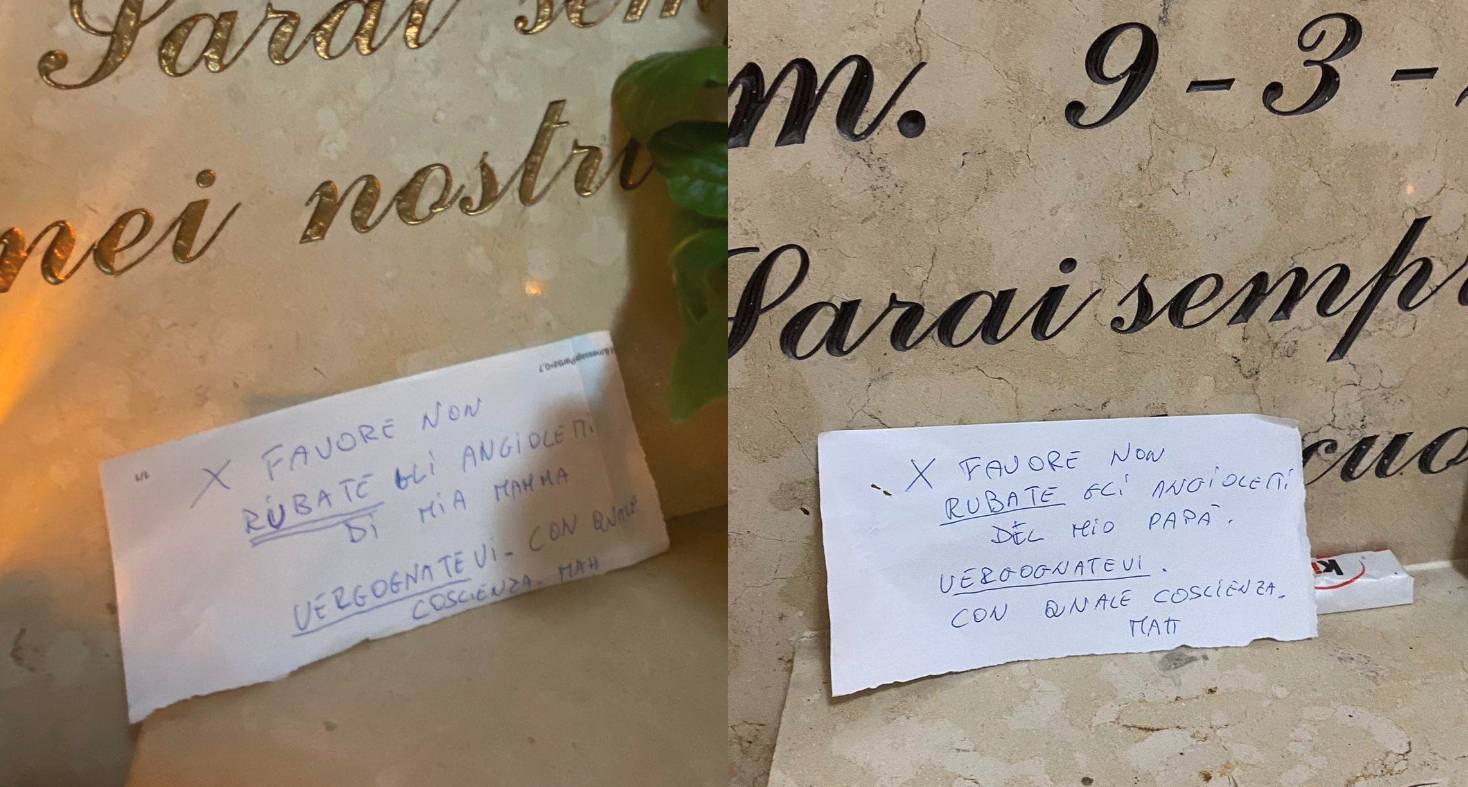 Sarai sem
nei nostri
X FAVORE NON
RUBATE GLI ANGIOLETTI
DI MIA MAMMA
VERGOGNATEVI - CON QUALE
COSCIENZA. MAH
1/1
m. 9-3-
Sarai sempr
cuo
X FAVORE NON
RUBATE GLI ANGIOLETTI
DEL MIO PAPÀ.
VERGOGNATEVI.
CON QUALE COSCIENZA.
MAH
Ki